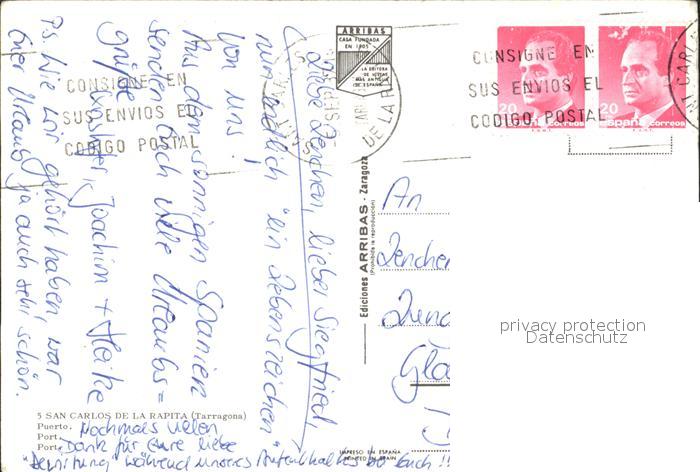 ARRIBAS
CASA FUNDADA
EN 1905
LA EDITORA
DE VISTAS
MAS ANTIGUA
DE ESPAÑA
CONSIGNE EN
SUS ENVIOS EL
CODIGO POSTAL
CONSIGNE EN
SUS ENVIOS EL
CODIGO POSTAL
DE LA R
20
20
España correos
correos
Liebe Lenchen, lieber Siegfried,
nun endlich "ein Lebenszeichen"
von uns!
Aus dem sonnigen Spanien
senden Euch viele Urlaubs=
grüße
Joachim + Heike
Ps. Wie wir gehört haben, war
Euer Urlaub ja auch sehr schön.
Nochmals vielen
Dank für Eure liebe
"Bewirtung" während unseres Aufenthaltes bei Euch!!
5 SAN CARLOS DE LA RAPITA (Tarragona)
Puerto.
Port.
Port.
Ediciones ARRIBAS - Zaragoza
(Prohibida la reproducción)
IMPRESO EN ESPAÑA
PRINTED IN SPAIN
An
Lenchen
privacy protection
Datenschutz